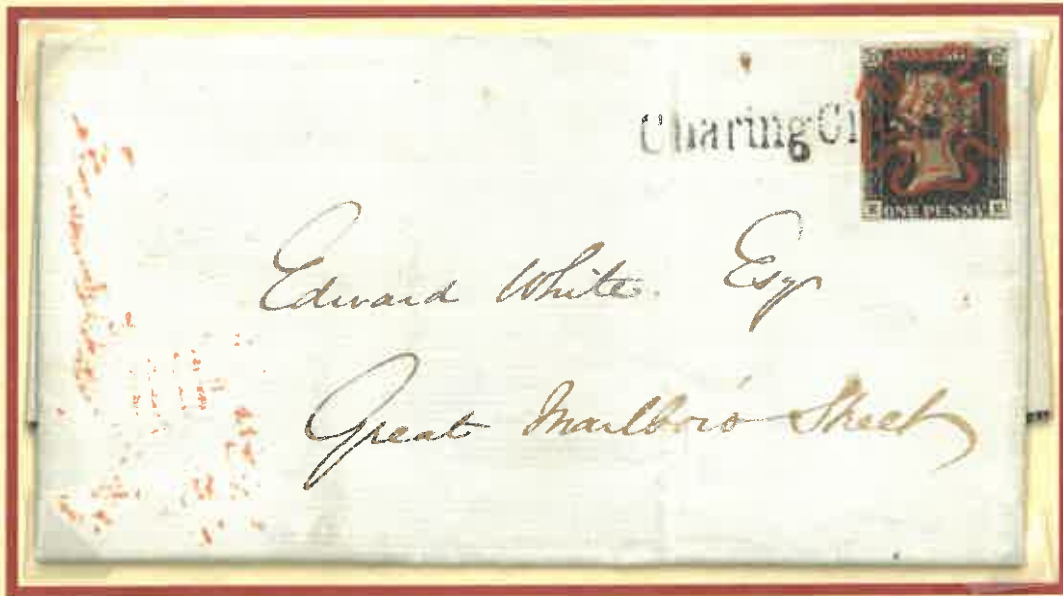 Charing Cr
ONE PENNY
Edward White. Esqr
Great Marlboro' Street